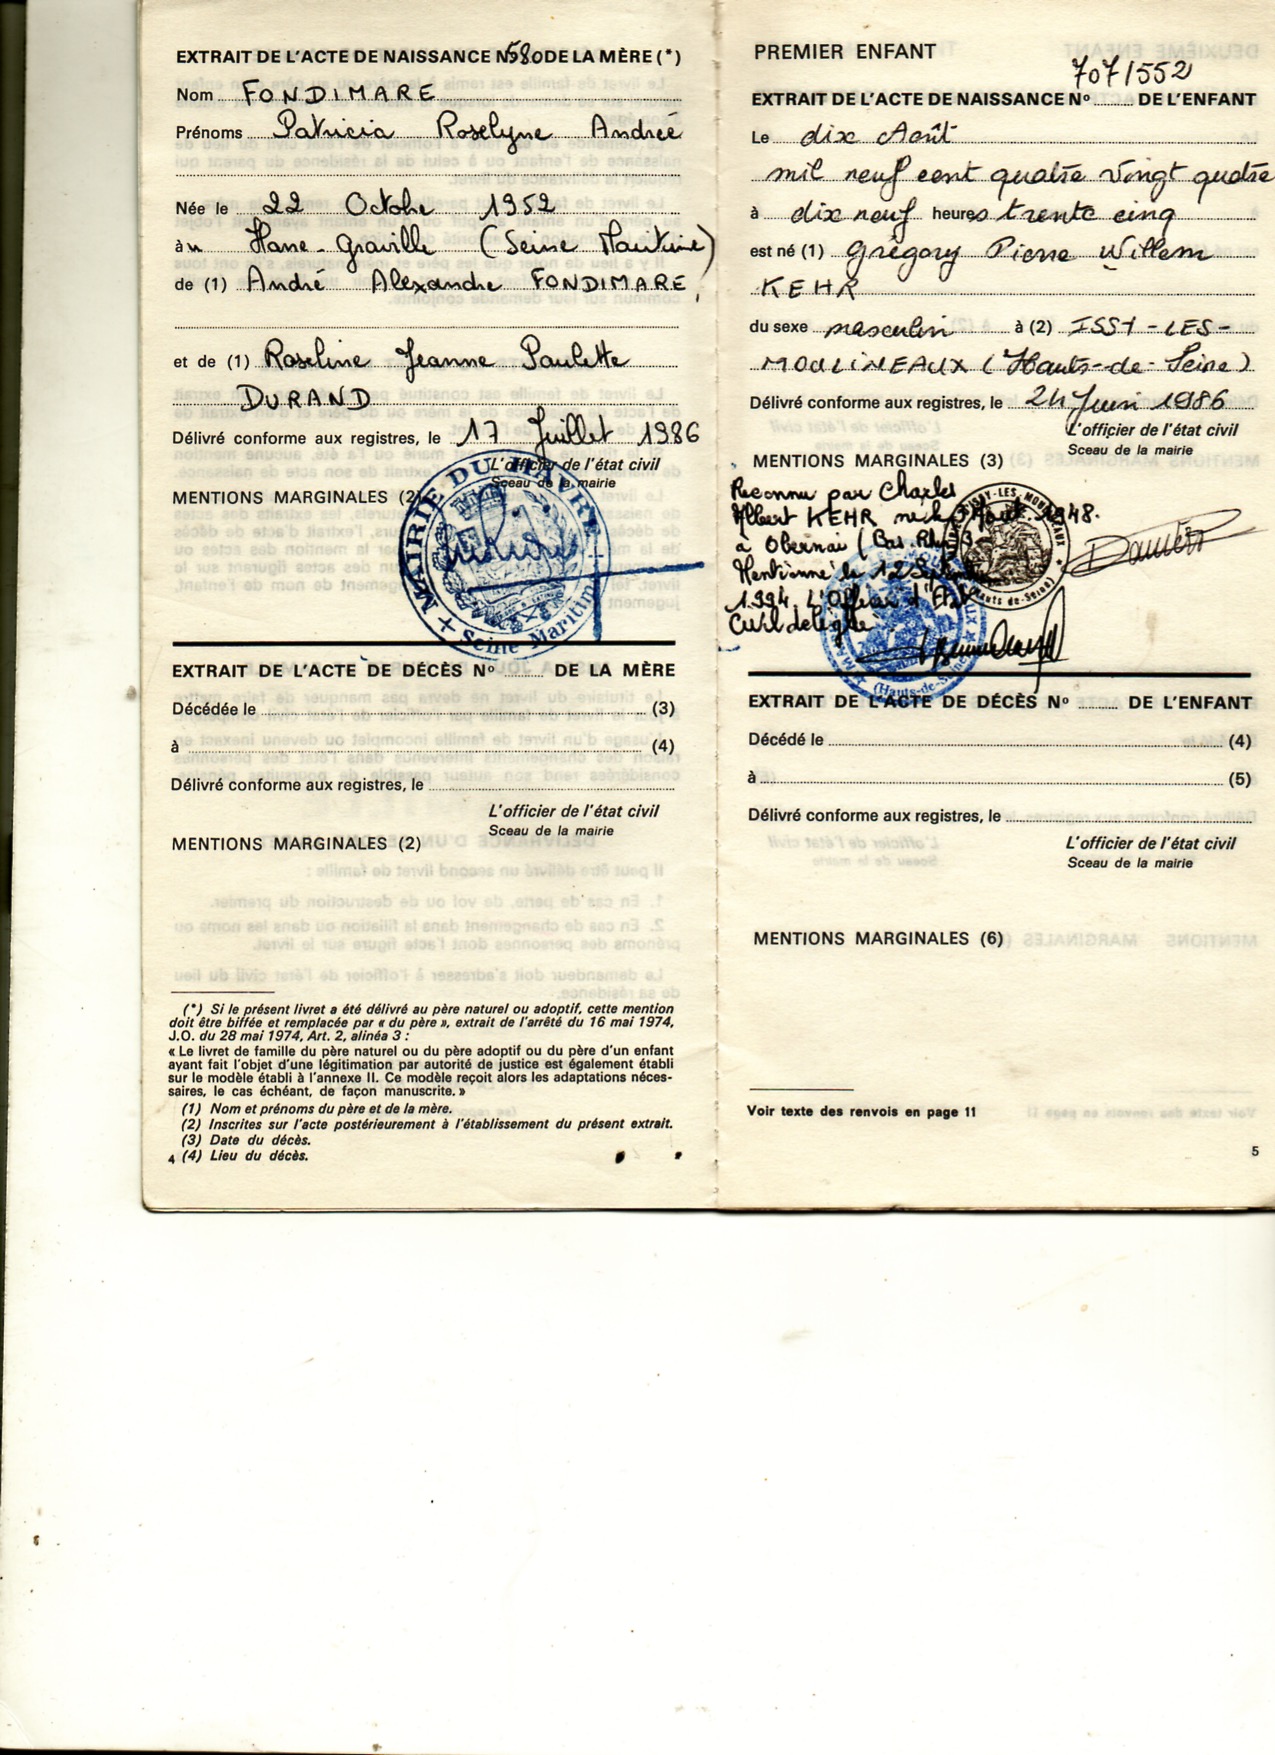 EXTRAIT DE L'ACTE DE NAISSANCE N580 DE LA MÈRE (*)
Nom FONDIMARE
Prénoms Patricia Roselyne Andrée
Née le 22 Octobre 1952
àu Havre-Graville (Seine Maritime)
de (1) André Alexandre FONDIMARE,
et de (1) Roseline Jeanne Paulette
DURAND
Délivré conforme aux registres, le 17 Juillet 1986
L'officier de l'état civil
Sceau de la mairie
MENTIONS MARGINALES (2)
MAIRIE DU HAVRE
Seine Maritime
EXTRAIT DE L'ACTE DE DÉCÈS Nº DE LA MÈRE
Décédée le (3)
à (4)
Délivré conforme aux registres, le
L'officier de l'état civil
Sceau de la mairie
MENTIONS MARGINALES (2)
(*) Si le présent livret a été délivré au père naturel ou adoptif, cette mention
doit être biffée et remplacée par « du père », extrait de l'arrêté du 16 mai 1974,
J.O. du 28 mai 1974, Art. 2, alinéa 3 :
« Le livret de famille du père naturel ou du père adoptif ou du père d'un enfant
ayant fait l'objet d'une légitimation par autorité de justice est également établi
sur le modèle établi à l'annexe II. Ce modèle reçoit alors les adaptations néces-
saires, le cas échéant, de façon manuscrite. »
(1) Nom et prénoms du père et de la mère.
(2) Inscrites sur l'acte postérieurement à l'établissement du présent extrait.
(3) Date du décès.
4 (4) Lieu du décès.
PREMIER ENFANT
707/552
EXTRAIT DE L'ACTE DE NAISSANCE Nº DE L'ENFANT
Le dix Août
mil neuf cent quatre vingt quatre
à dix neuf heures trente cinq
est né (1) Grégory Pierre Willem
KEHR
du sexe masculin à (2) ISSY-LES-
MOULINEAUX (Hauts-de-Seine)
Délivré conforme aux registres, le 24 Juin 1986
L'officier de l'état civil
Sceau de la mairie
MENTIONS MARGINALES (3)
Reconnu par Charles
Albert KEHR né Août 1948.
à Obernai (Bas-Rhin)
Mentionné le 12 Septembre
1994 L'Officier d'Etat
Civil délégué
ISSY-LES-MOULINEAUX
(Hauts-de-Seine)
(Hauts-de-Seine)
EXTRAIT DE L'ACTE DE DÉCÈS Nº DE L'ENFANT
Décédé le (4)
à (5)
Délivré conforme aux registres, le
L'officier de l'état civil
Sceau de la mairie
MENTIONS MARGINALES (6)
Voir texte des renvois en page 11
5